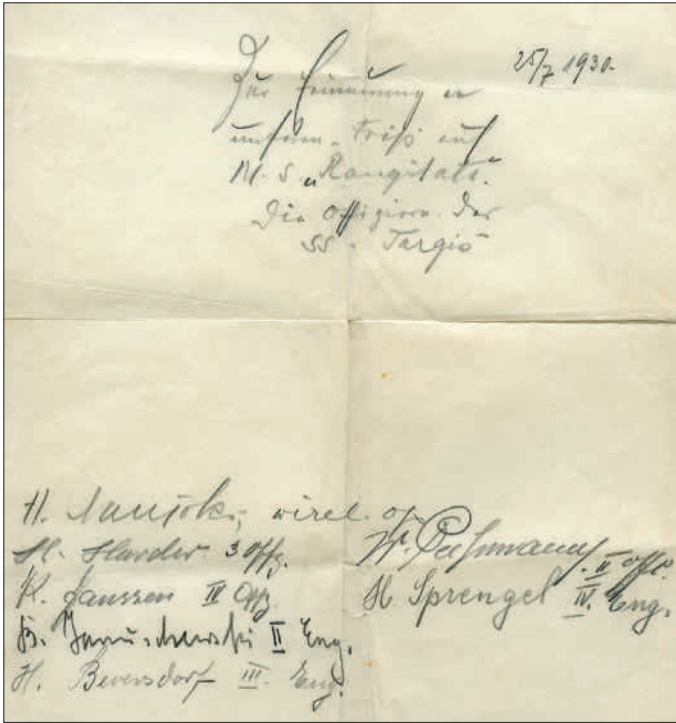 25/7 1930.
Zur Erinnerung an
unseren
M.S. „Rangitata."
Die Offiziere der
SS. Targis
H. wirel. op.
H. Harder 3 Offz.
K. Janssen IV Offz
B. II Eng.
H. Beversdorf III. Eng.
W. II Offz.
H Sprengel IV. Eng.